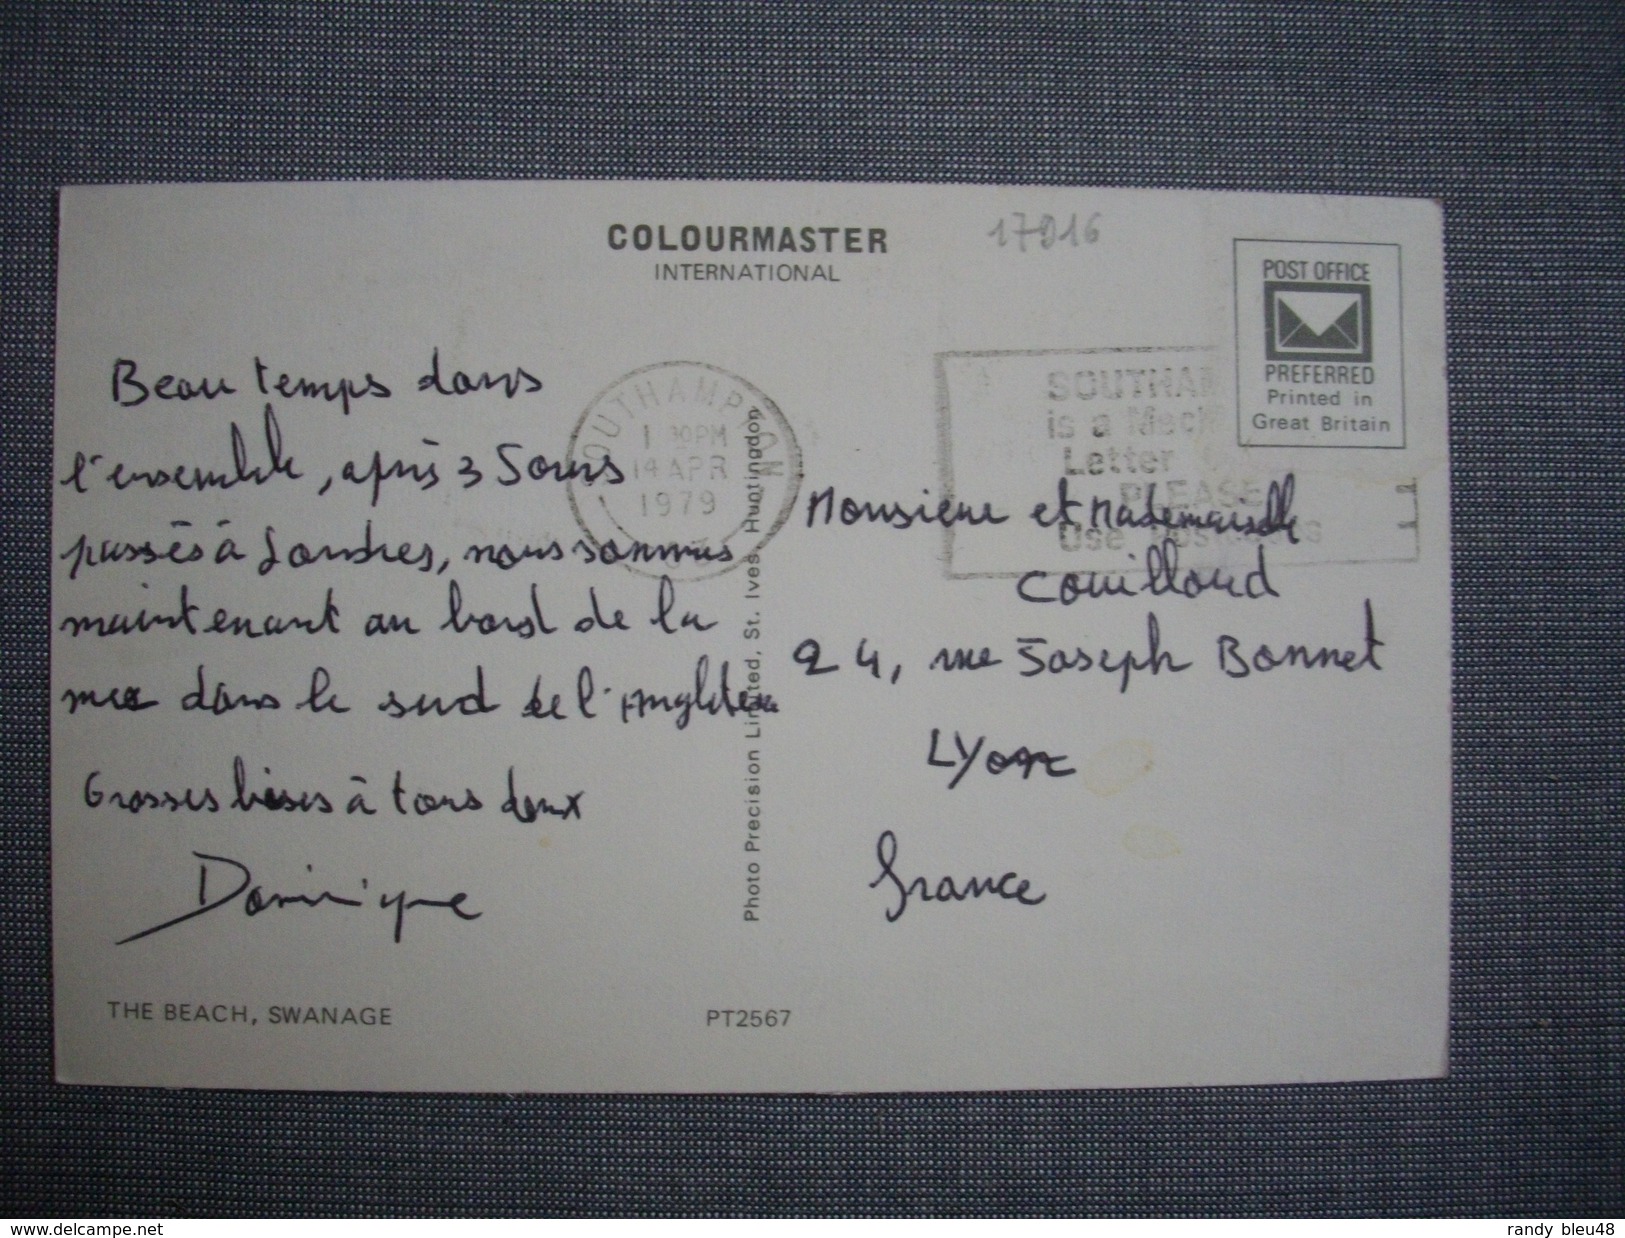 COLOURMASTER
INTERNATIONAL
17016
POST OFFICE
PREFERRED
Printed in
Great Britain
SOUTHAMPTON
1 30PM
14 APR
1979
SOUTHAM
is a Mech
Letter
PLEASE
Use Postcodes
Beau temps dans
l'ensemble, après 3 Jours
passés à Londres, nous sommes
maintenant au bord de la
mer dans le sud de l'Angleterre
Grosses bises à tous deux
Dominique
Monsieur et Mademoiselle
Couilloud
24, rue Joseph Bonnet
LYon
France
Photo Precision Limited, St. Ives, Huntingdon
THE BEACH, SWANAGE
PT2567
www.delcampe.net
randy_bleu48